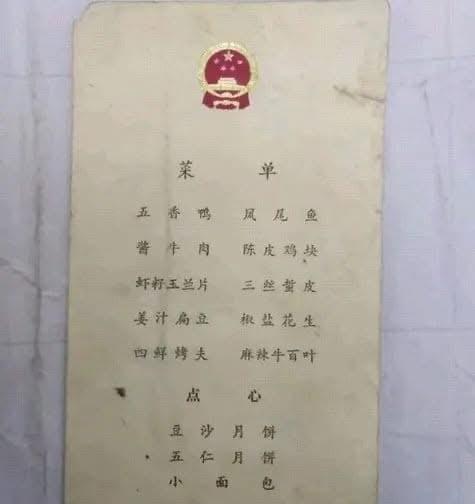 菜单
五香鸭 凤尾鱼
酱牛肉 陈皮鸡块
虾籽玉兰片 三丝蜇皮
姜汁扁豆 椒盐花生
四鲜烤夫 麻辣牛百叶
点心
豆沙月饼
五仁月饼
小面包